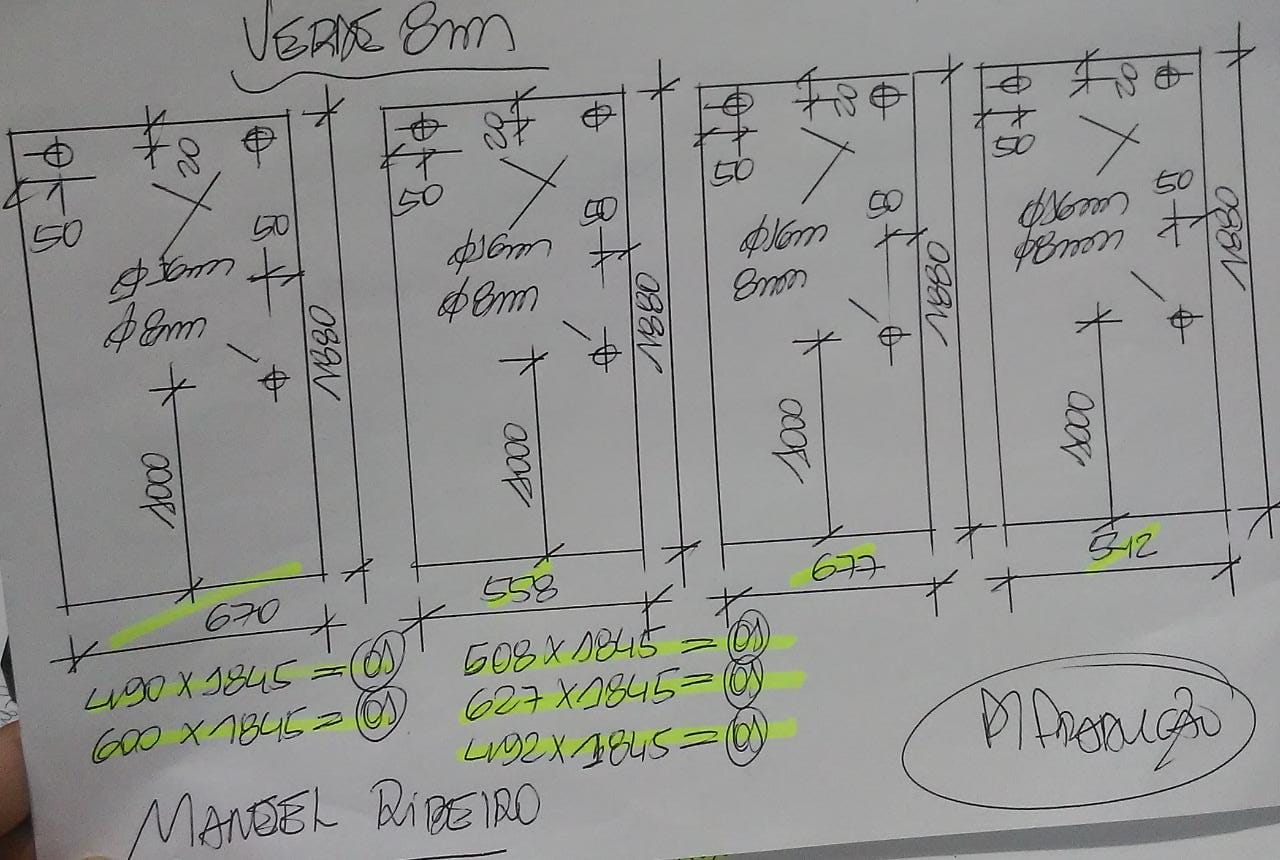 VERDE 8m
20
50
50
φ16mm
φ8mm
1880
1000
670
20
50
50
φ16mm
φ8mm
1880
1000
558
20
50
50
φ16mm
8mm
1880
1000
677
20
50
50
φ16mm
φ8mm
1880
1000
542
490 X 1845 = 01
600 X 1845 = 01
508 X 1845 = 01
627 X 1845 = 01
492 X 1845 = 01
P/ PRODUÇÃO
MANOEL RIBEIRO